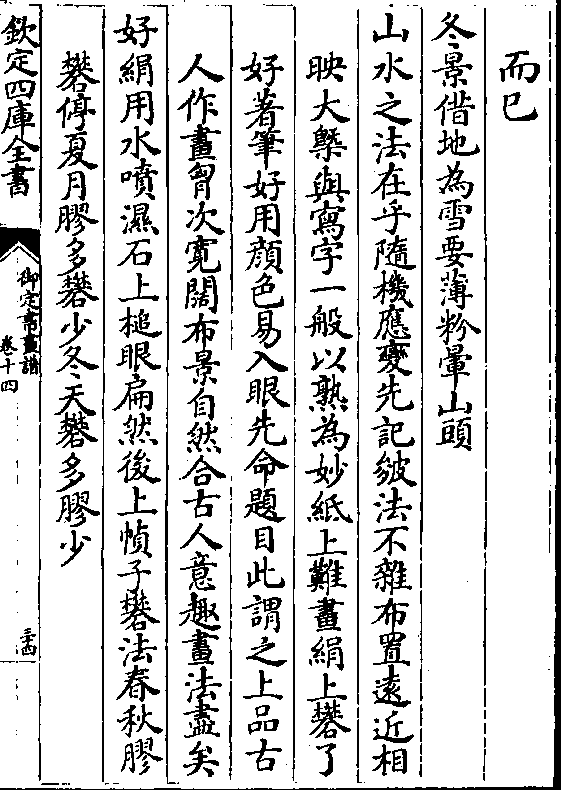 而已
冬景借地為雪要薄粉暈山頭
山水之法在乎隨機應變先記皴法不雜布置遠近相
映大槩與寫字一般以熟為妙紙上難畫絹上礬了
好著筆好用顔色易入眼先命題目此謂之上品古
人作畫胷次寛闊布景自然合古人意趣畫法盡矣
好絹用水噴濕石上槌眼扁然後上幀子礬法春秋膠
礬停夏月膠多礬少冬天礬多膠少
欽定四庫全書
御定書畫譜
卷十四
三十四